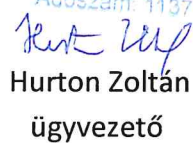 Adószám: 1137
Hurton Zoltán
ügyvezető